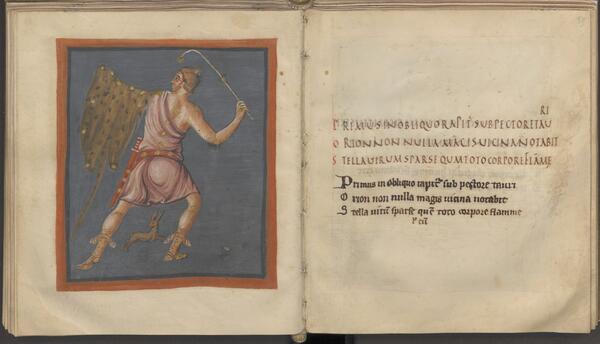 RI
PREMUS INOBLIQUO RAPIT SUB PECTORE TAU
ORION NON NULLA MAGIS UICINA NOTABIT
STELLA UIRUM SPARSE QUAM TOTO CORPORE FLAME
Primus in obliquo rapit sub pectore tauri
Orion non nulla magis uicina notabit
Stella uirū sparse quē toto corpore flamme